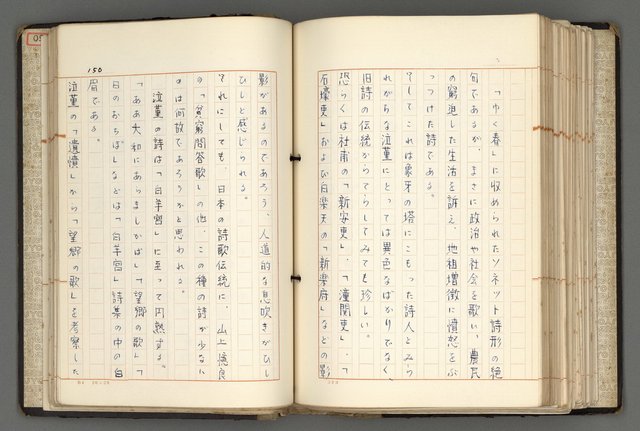 「ゆく春」に収められたソネット詩形の絶
句であるが、まさに政治や社会を歌い、農民
の窮迫した生活を訴え、地租増徴に憤怒をぶ
っつけた詩である。
そしてこれは象牙の塔にこもった詩人とみら
れがちな泣菫にとっては異色なばかりでなく、
旧詩の伝統からてらしてみても珍しい。
恐らくは杜甫の「新安吏」、「潼関吏」、「
石壕吏」および白楽天の「新楽府」などの影
150
影があるのであろう、人道的な息吹きがひし
ひしと感じられる。
それにしても、日本の詩歌伝統に、山上憶良
の「貧窮問答歌」の他、この種の詩が少ない
のは何故であろうかと思われる。
泣菫の詩は「白羊宮」に至って円熟する。
「ああ大和にあらましかば」「望郷の歌」「
日のおちぼ」などは「白羊宮」詩集の中の白
眉である。
泣菫の「遺憤」から「望郷の歌」を考察した